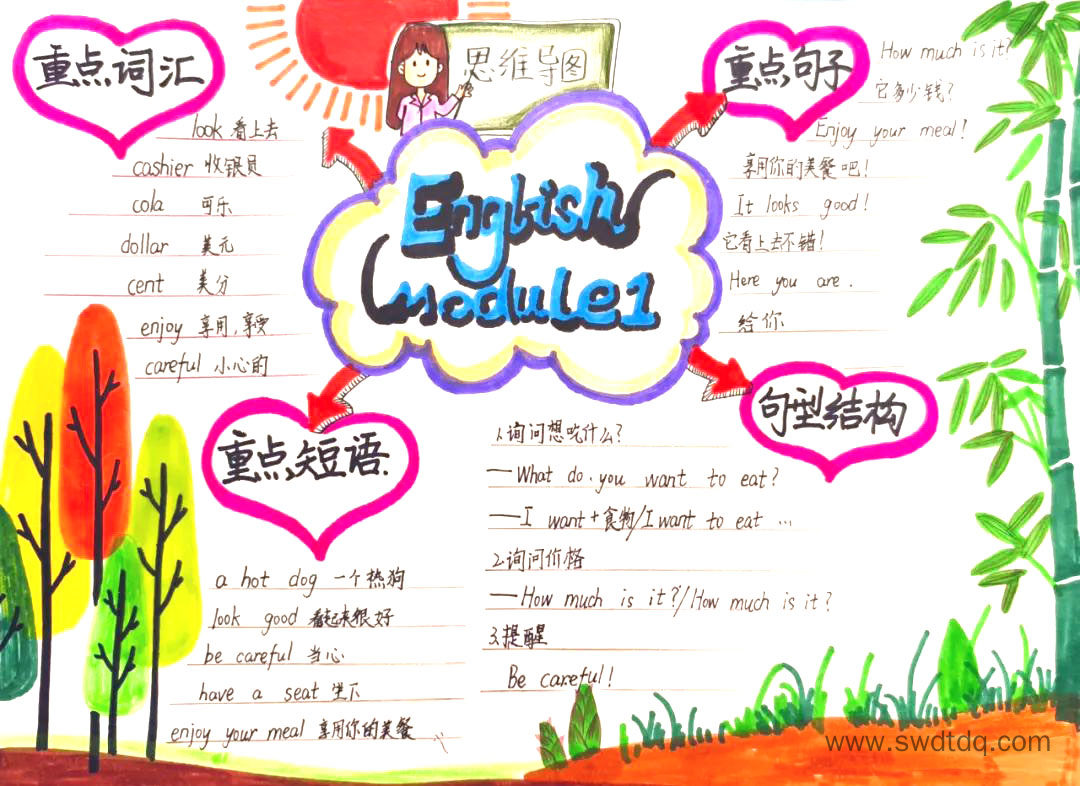 思维导图
English
Module1
重点词汇
look 看上去
cashier 收银员
cola 可乐
dollar 美元
cent 美分
enjoy 享用,享受
careful 小心的
重点句子
How much is it?
它多少钱?
Enjoy your meal!
享用你的美餐吧!
It looks good!
它看上去不错!
Here you are.
给你
重点短语.
a hot dog 一个热狗
look good 看起来很好
be careful 当心
have a seat 坐下
enjoy your meal 享用你的美餐
句型结构
1.询问想吃什么?
—What do you want to eat?
—I want+食物/I want to eat ...
2.询问价格
—How much is it?/How much is it?
3.提醒
Be careful!
www.swdtdq.com